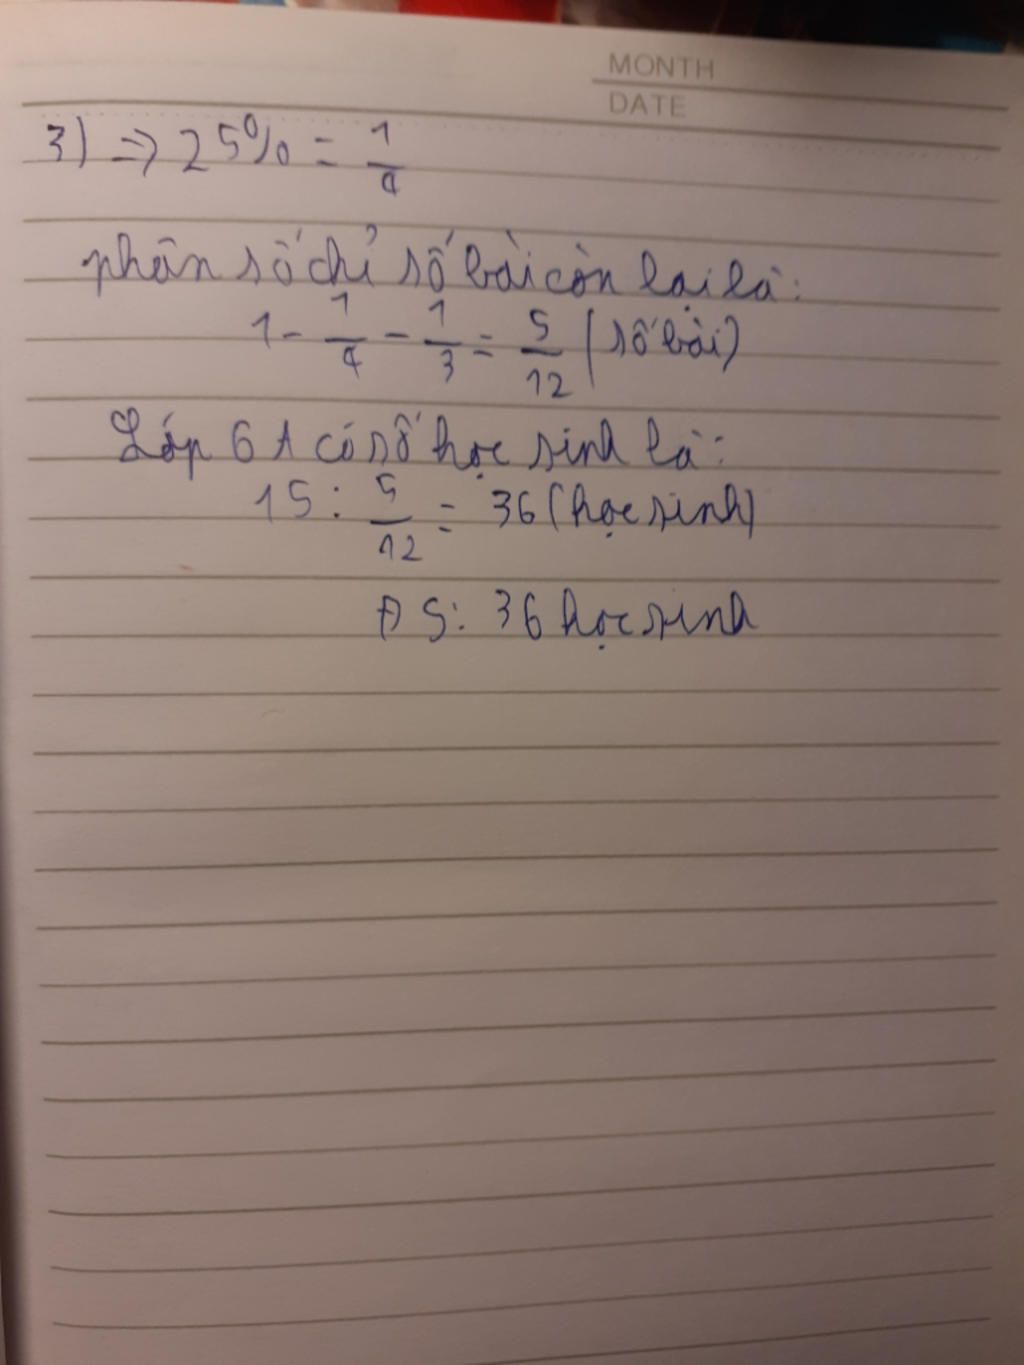 MONTH
DATE
3) => 25% = 1/4
phân số chỉ số bài còn lại là:
1 - 1/4 - 1/3 = 5/12 (số bài)
Lớp 6A có số học sinh là:
15 : 5/12 = 36 (học sinh)
ĐS: 36 học sinh